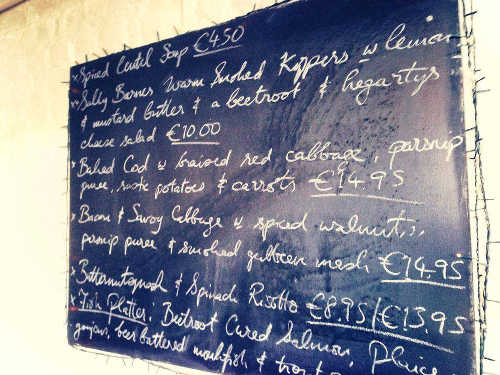 * Spiced Lentil Soup €4.50
* Sally Barnes Warm Smoked Kippers w lemon
& mustard butter & a beetroot & hegartys
cheese salad €10.00
* Baked Cod w braised red cabbage, parsnip
puree, roast potatoes & carrots €14.95
* Bacon & Savoy Cabbage w spiced walnuts,
parsnip puree & smoked gubbeen mash €14.95
* Butternutsquash & Spinach Risotto €8.95/€13.95
* Fish Platter: Beetroot Cured Salmon, Plaice
goujon, beer battered monkfish & trout